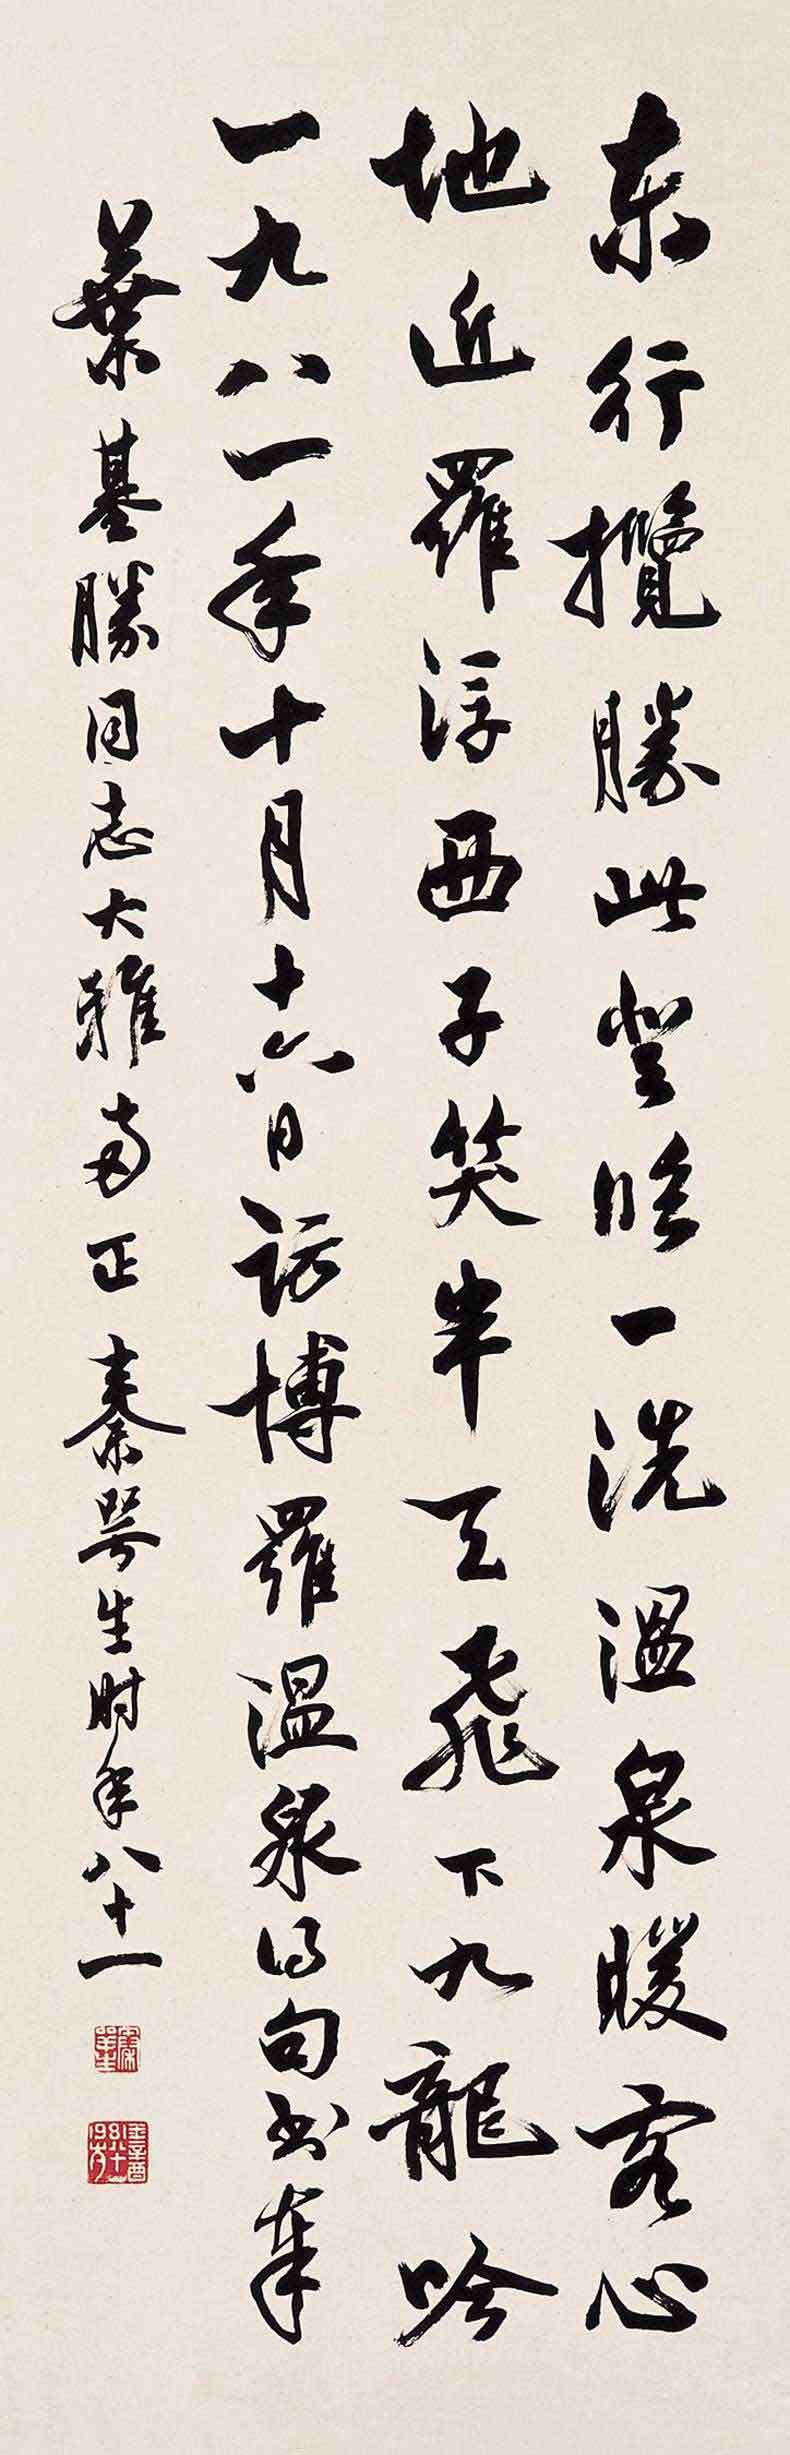 东行攬勝此登臨一洗温泉暖客心
地近羅浮西子笑半天飛下九龍吟
一九八一年十月十六日訪博羅温泉得句书奉
葉基勝同志大雅两正秦咢生时年八十一